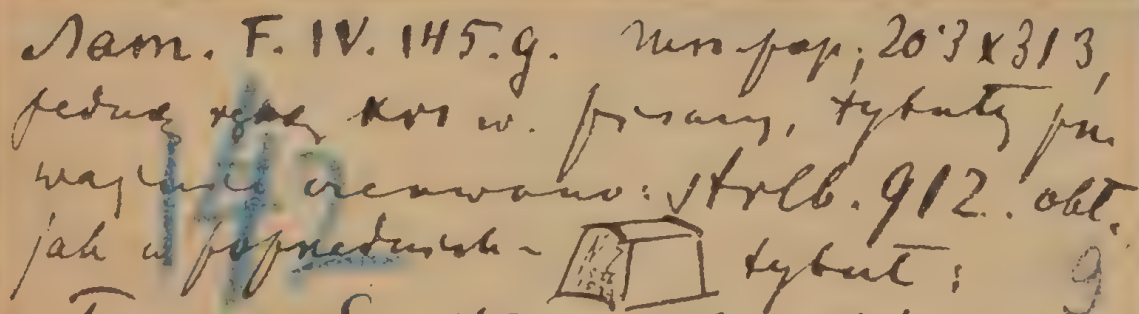 Лат. F. IV. 145. g. Mns pap; 20·3 x 31·3,
jedną ręką XVI w. pisany, tytuły prze
ważnie czerwono: Strlb. 912. obł.
jak w poprzednich - tytuł: 9
142